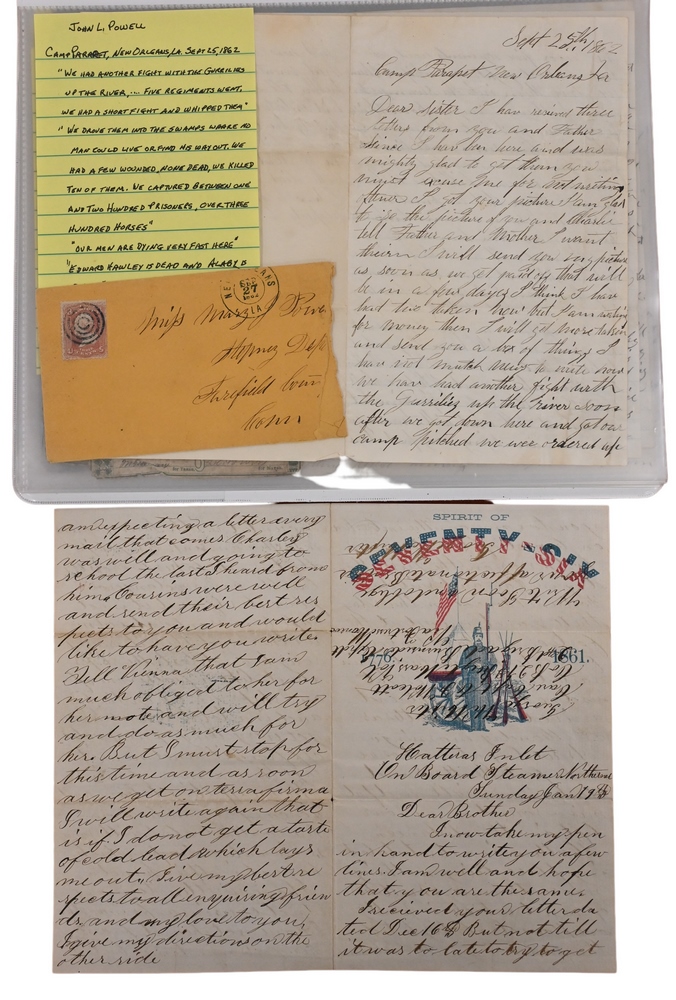 JOHN L. POWELL
CAMP PARAPET, NEW ORLEANS, LA. SEPT 25, 1862
"WE HAD ANOTHER FIGHT WITH THE GUERILLIES
UP THE RIVER, ... FIVE REGIMENTS WENT.
WE HAD A SHORT FIGHT AND WHIPPED THEM"
"WE DROVE THEM INTO THE SWAMPS WHARE NO
MAN COULD LIVE OR FIND HIS WAY OUT. WE
HAD A FEW WOUNDED, NONE DEAD, WE KILLED
TEN OF THEM. WE CAPTURED BETWEEN ONE
AND TWO HUNDRED PRISONERS, OVER THREE
HUNDRED HORSES"
"OUR MEN ARE DYING VERY FAST HERE"
"EDWARD HAWLEY IS DEAD AND
27
LA
Miss
Fairfield
Conn
Sept 25th, 1862
Camp Parapet New Orleans
Dear Sister I hav recieved three
letters from you and Father
since I hav ben here and was
mighty glad to get them you
must excuse me for not writing
I got your picture I am glad
to the picture of you and Charlie
tell Father and Mother I want
I will send you my picture
as soon as we get paid off that will
be in a few dayes I think I have
had two taken now but I am waiting
for money then I will get more taken
and send you a box of things I
hav not mutch to write now
we hav had another fight with
the up the river soon
after we got down here and got our
camp pitched we wer ordered up
am expecting a letter every
mail that comes Charley
was well and going to
school the last I heard from
him. Cousins were well
and send their best res
pects to you and would
like to have you write.
Tell Vienna that I am
much obliged to her for
her note and will try
and do as much for
her. But I must stop for
this time and as soon
as we get on terra firma
I will write again that
is if I do not get a taste
of cold lead which lays
me out. Give my best re
spects to all enquiring frien
ds, and my love to you,
I give my directions on the
other side
SPIRIT OF
SEVENTY-SIX
1776. 1861.
Hatteras Inlet
On Board Steamer Northerner
Sunday Jan 19th
Dear Brother
I now take my pen
in hand to write you a few
lines. I am well and hope
that you are the same.
I recieved your letter da
ted Dec 16th But not till
it was to late to try to get